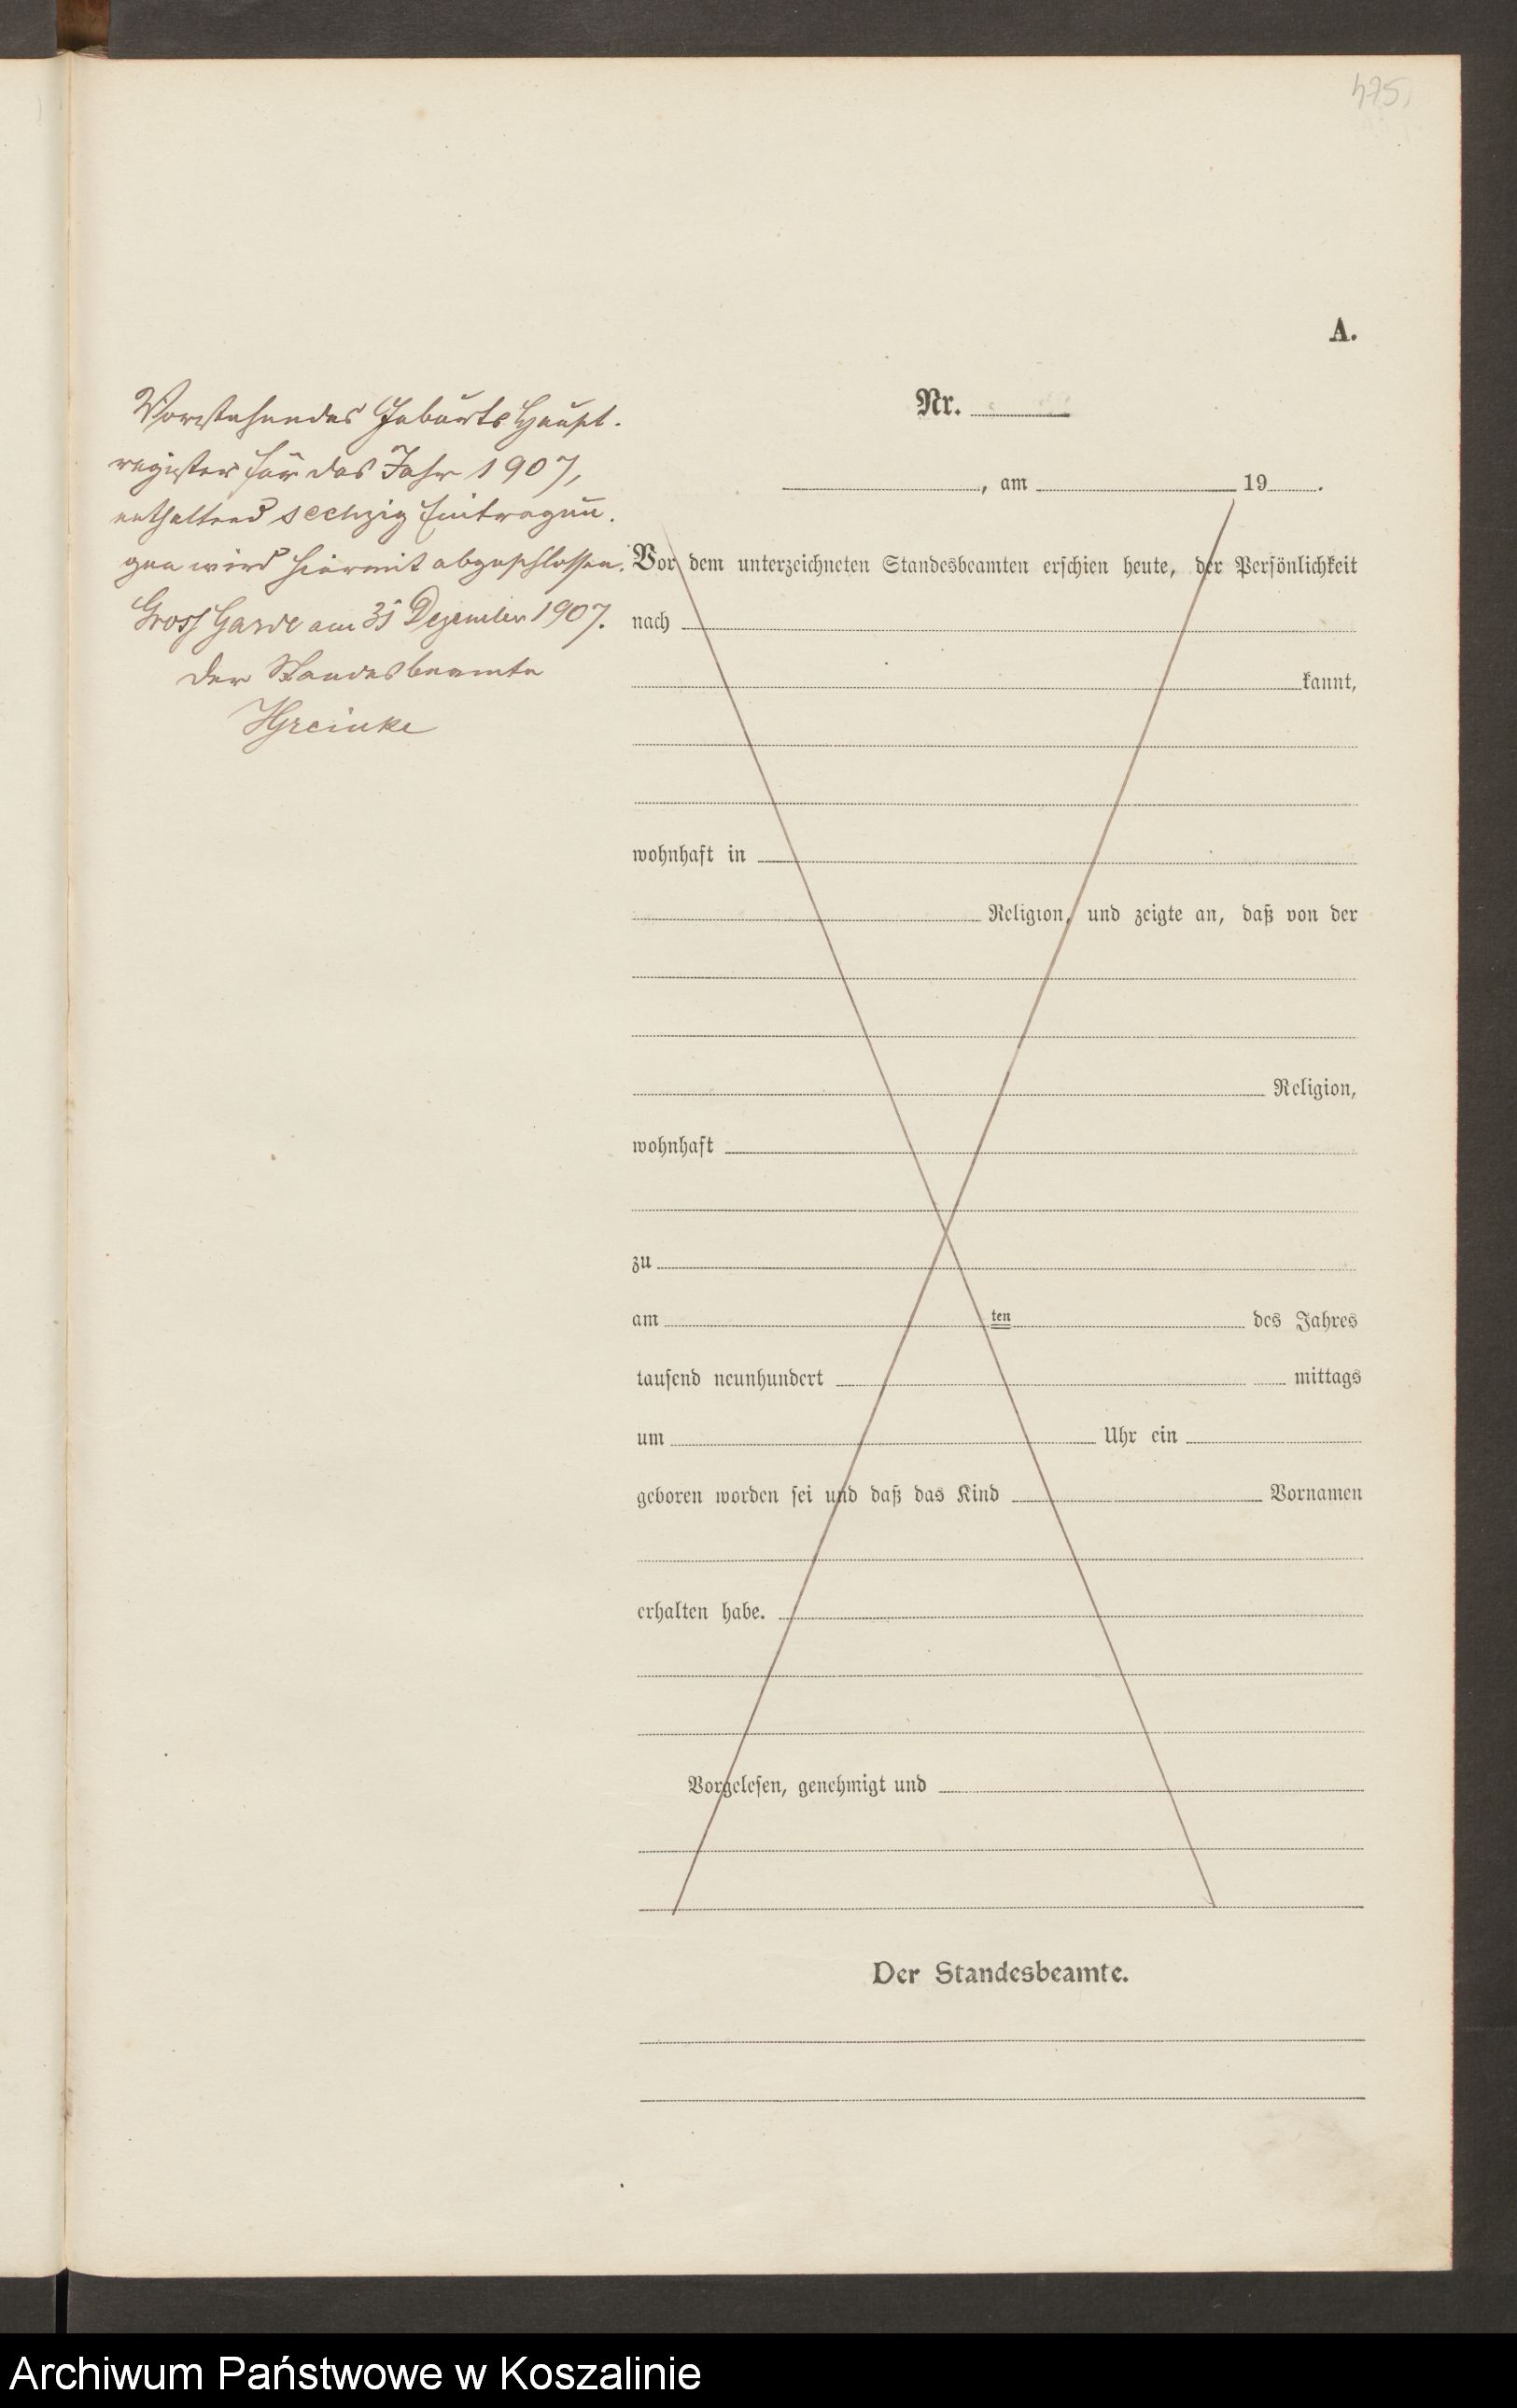 475
A.
Vorstehendes Geburts Haupt-
register für das Jahr 1907,
enthaltend sechzig Eintragun-
gen wird hiermit abgeschlossen.
Gross Garde am 31 Dezember 1907.
Der Standesbeamte
Nr.
, am 19 .
Vor dem unterzeichneten Standesbeamten erschien heute, der Persönlichkeit
nach
kannt,
wohnhaft in
Religion, und zeigte an, daß von der
Religion,
wohnhaft
zu
am ten des Jahres
tausend neunhundert mittags
um Uhr ein
geboren worden sei und daß das Kind Vornamen
erhalten habe.
Vorgelesen, genehmigt und
Der Standesbeamte.
Archiwum Państwowe w Koszalinie